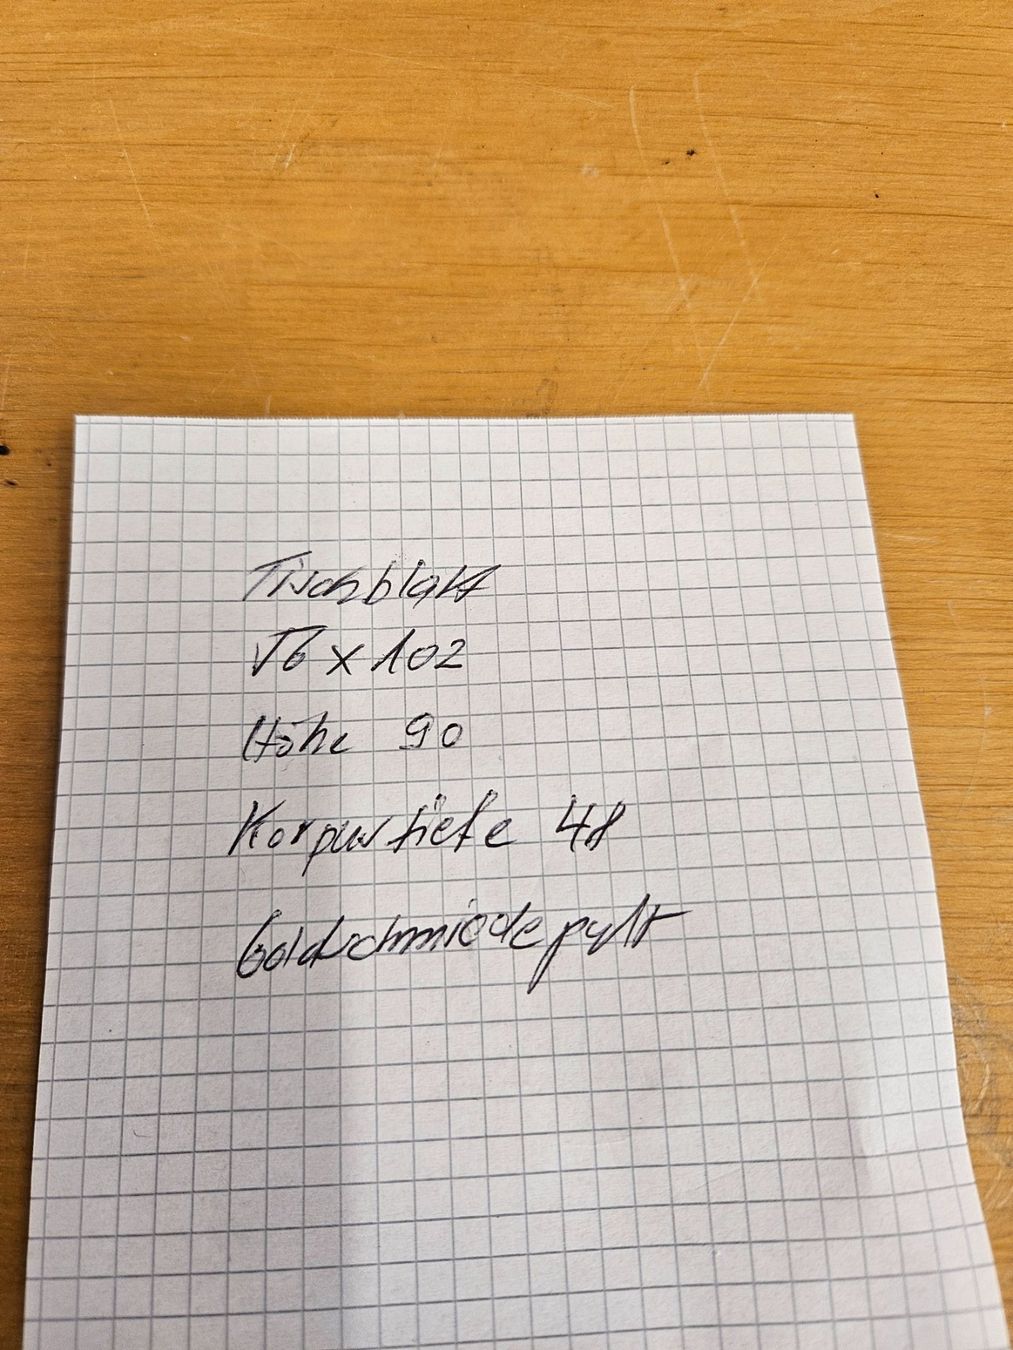 Tischblatt
56 x 102
Höhe 90
Korpustiefe 48
Goldschmiedepult